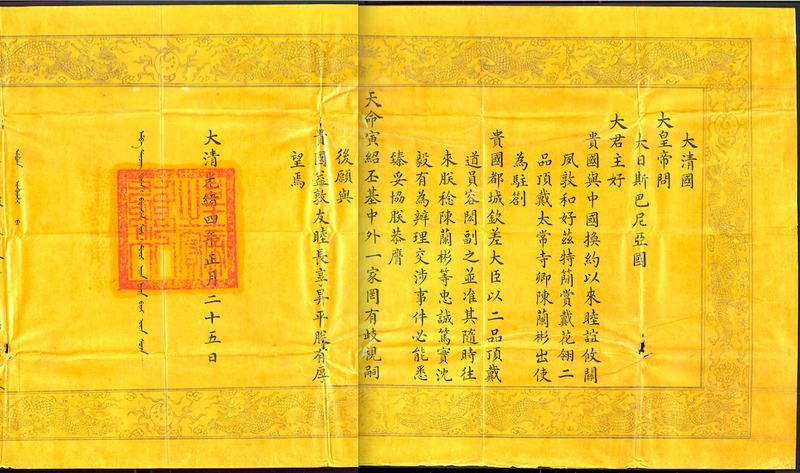 大清國
大皇帝問
大日斯巴尼亞國
大君主好
貴國與中國換約以來睦誼攸關
夙敦和好茲特簡賞戴花翎二
品頂戴太常寺卿陳蘭彬出使
為駐劄
貴國都城欽差大臣以二品頂戴
道員容閎副之並准其隨時往
來朕稔陳蘭彬等忠誠篤實沈
毅有為辦理交涉事件必能悉
臻妥協朕恭膺
天命寅紹丕基中外一家罔有歧視嗣
後願與
貴國益敦友睦長享昇平朕有厚
望焉
大清光緒四年正月二十五日